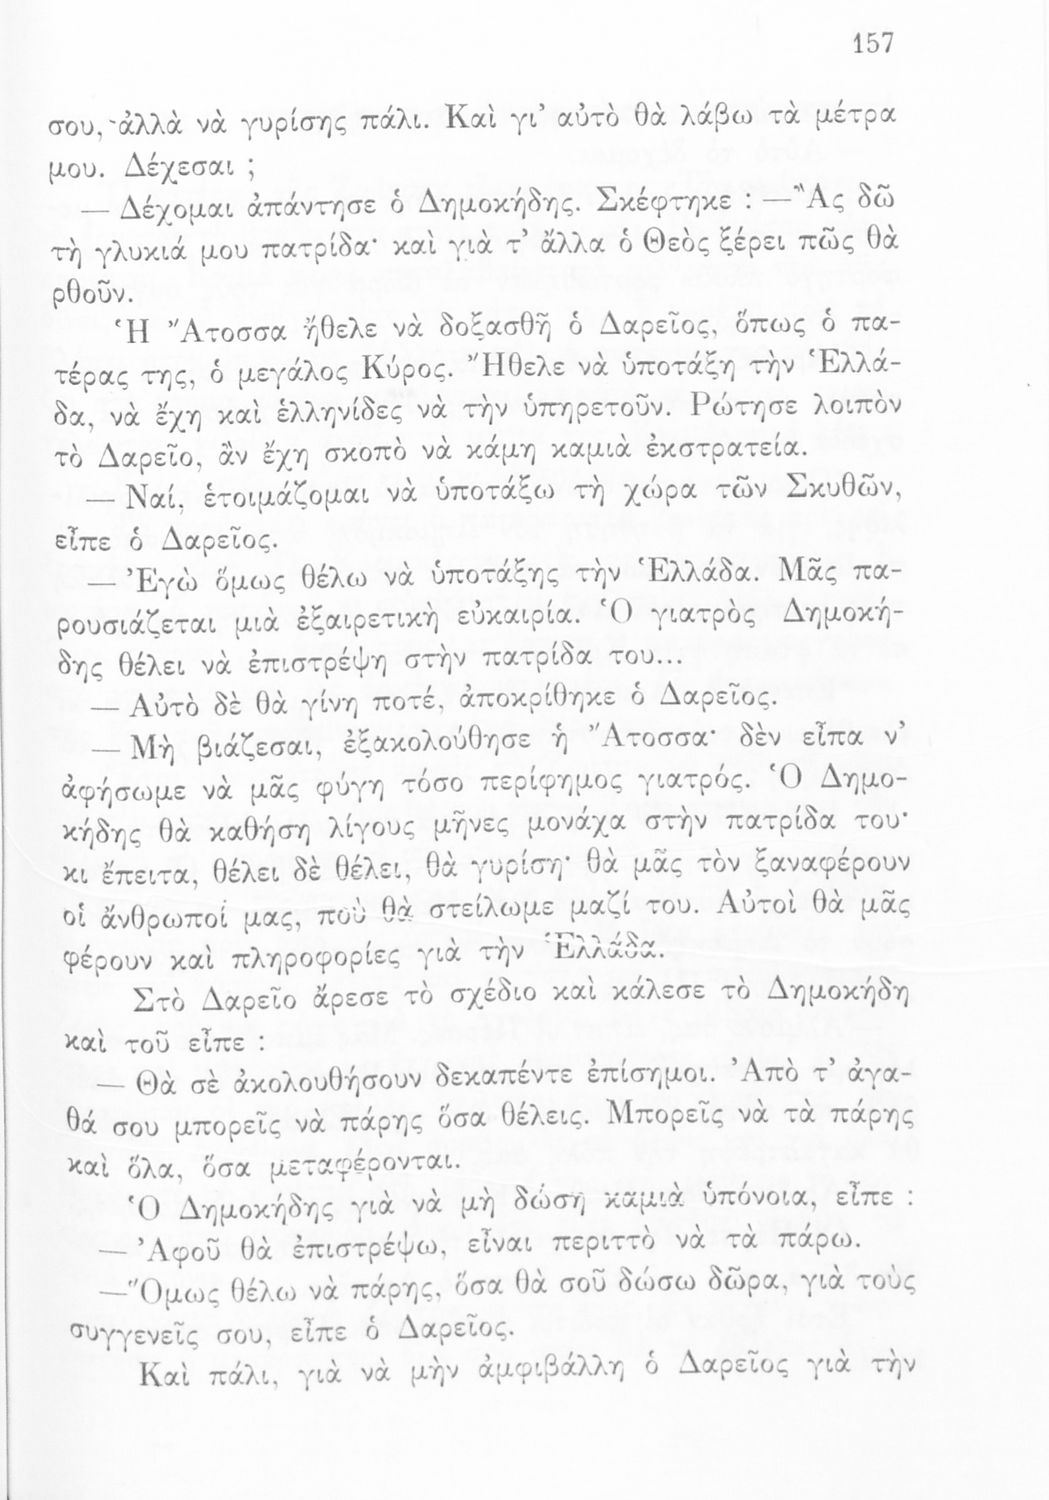 157
σου, ἀλλὰ νὰ γυρίσης πάλι. Καὶ γι’ αὐτὸ θὰ λάβω τὰ μέτρα
μου. Δέχεσαι ;
— Δέχομαι ἀπάντησε ὁ Δημοκήδης. Σκέφτηκε : —Ἂς δῶ
τὴ γλυκιά μου πατρίδα· καὶ γιὰ τ’ ἄλλα ὁ Θεὸς ξέρει πῶς θὰ
ρθοῦν.
Ἡ Ἄτοσσα ἤθελε νὰ δοξασθῆ ὁ Δαρεῖος, ὅπως ὁ πα-
τέρας της, ὁ μεγάλος Κύρος. Ἤθελε νὰ ὑποτάξη τὴν Ἑλλά-
δα, νὰ ἔχη καὶ ἑλληνίδες νὰ τὴν ὑπηρετοῦν. Ρώτησε λοιπὸν
τὸ Δαρεῖο, ἂν ἔχη σκοπὸ νὰ κάμη καμιὰ ἐκστρατεία.
— Ναί, ἑτοιμάζομαι νὰ ὑποτάξω τὴ χώρα τῶν Σκυθῶν,
εἶπε ὁ Δαρεῖος.
— Ἐγὼ ὅμως θέλω νὰ ὑποτάξης τὴν Ἑλλάδα. Μᾶς πα-
ρουσιάζεται μιὰ ἐξαιρετικὴ εὐκαιρία. Ὁ γιατρὸς Δημοκή-
δης θέλει νὰ ἐπιστρέψη στὴν πατρίδα του...
— Αὐτὸ δὲ θὰ γίνη ποτέ, ἀποκρίθηκε ὁ Δαρεῖος.
— Μὴ βιάζεσαι, ἐξακολούθησε ἡ Ἄτοσσα· δὲν εἶπα ν’
ἀφήσωμε νὰ μᾶς φύγη τόσο περίφημος γιατρός. Ὁ Δημο-
κήδης θὰ καθήση λίγους μῆνες μονάχα στὴν πατρίδα του·
κι ἔπειτα, θέλει δὲ θέλει, θὰ γυρίση· θὰ μᾶς τὸν ξαναφέρουν
οἱ ἄνθρωποί μας, ποὺ θὰ στείλωμε μαζί του. Αὐτοὶ θὰ μᾶς
φέρουν καὶ πληροφορίες γιὰ τὴν Ἑλλάδα.
Στὸ Δαρεῖο ἄρεσε τὸ σχέδιο καὶ κάλεσε τὸ Δημοκήδη
καὶ τοῦ εἶπε :
— Θὰ σὲ ἀκολουθήσουν δεκαπέντε ἐπίσημοι. Ἀπὸ τ’ ἀγα-
θά σου μπορεῖς νὰ πάρης ὅσα θέλεις. Μπορεῖς νὰ τὰ πάρης
καὶ ὅλα, ὅσα μεταφέρονται.
Ὁ Δημοκήδης γιὰ νὰ μὴ δώση καμιὰ ὑπόνοια, εἶπε :
— Ἀφοῦ θὰ ἐπιστρέψω, εἶναι περιττὸ νὰ τὰ πάρω.
—Ὅμως θέλω νὰ πάρης, ὅσα θὰ σοῦ δώσω δῶρα, γιὰ τοὺς
συγγενεῖς σου, εἶπε ὁ Δαρεῖος.
Καὶ πάλι, γιὰ νὰ μὴν ἀμφιβάλλη ὁ Δαρεῖος γιὰ τὴν